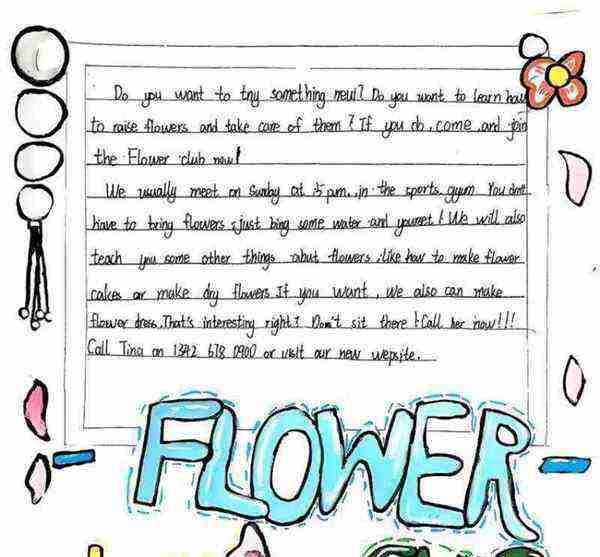 Do you want to tny something new? Do you want to learn how
to raise flowers and take care of them? If you do, come and join
the Flower club now!
We usually meet on Sunday at 5 p.m. in the sports gyum. You don't
have to bring flowers, just bing some water and youreet! We will also
teach you some other things abut flowers, like how to make flower
cakes or make dry flowers. If you want, we also can make
flower dress. That's interesting right? Don't sit there! Call her now!!!
Call Tina on 1342 678 0900 or visit our new wepsite.
FLOWER